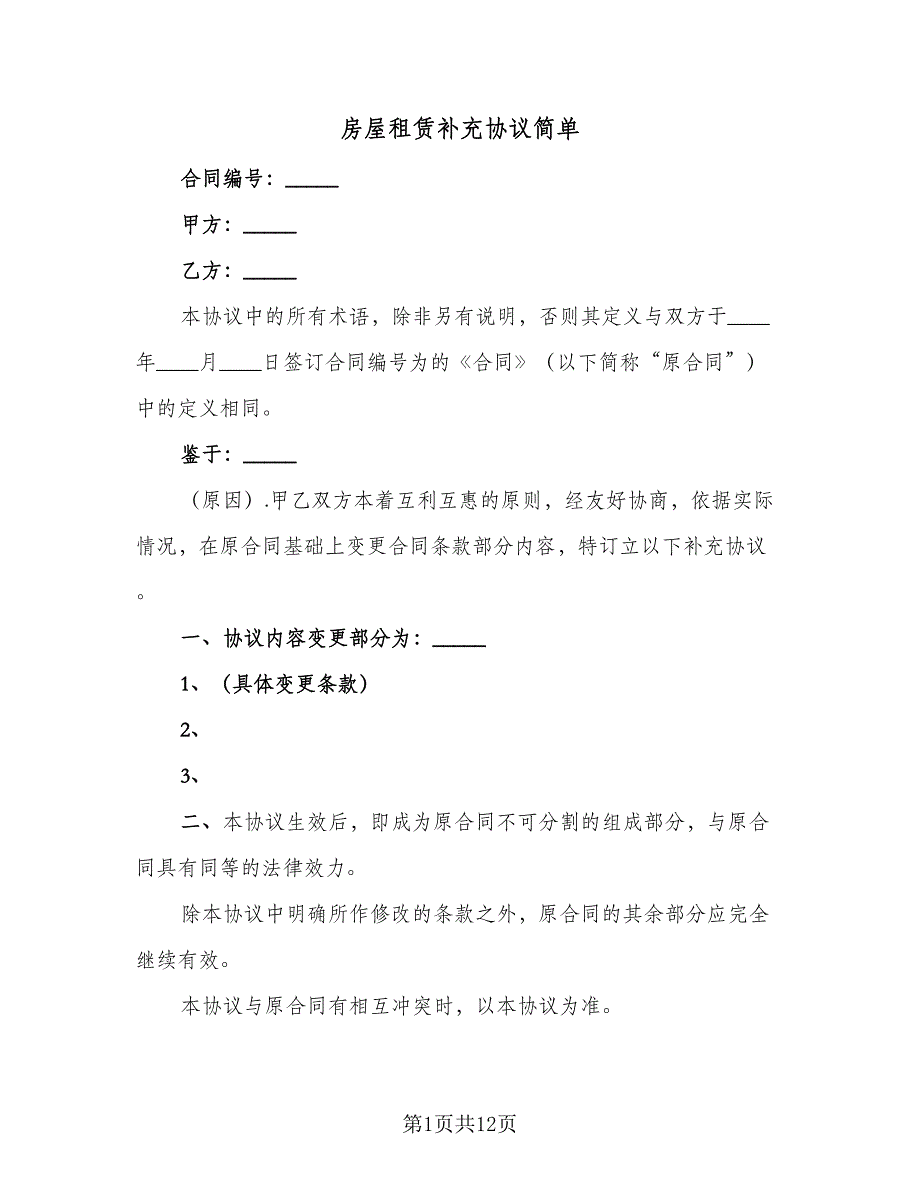 房屋租赁补充协议简单
合同编号：_____
甲方：_____
乙方：_____
本协议中的所有术语，除非另有说明，否则其定义与双方于____
年____月____日签订合同编号为的《合同》（以下简称“原合同”）
中的定义相同。
鉴于：_____
（原因）.甲乙双方本着互利互惠的原则，经友好协商，依据实际
情况，在原合同基础上变更合同条款部分内容，特订立以下补充协议
。
一、协议内容变更部分为：_____
1、（具体变更条款）
2、
3、
二、本协议生效后，即成为原合同不可分割的组成部分，与原合
同具有同等的法律效力。
除本协议中明确所作修改的条款之外，原合同的其余部分应完全
继续有效。
本协议与原合同有相互冲突时，以本协议为准。
第1页共12页